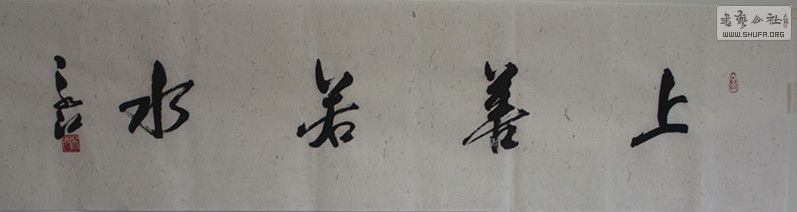 上善若水
书艺公社
WWW.SHUFA.ORG